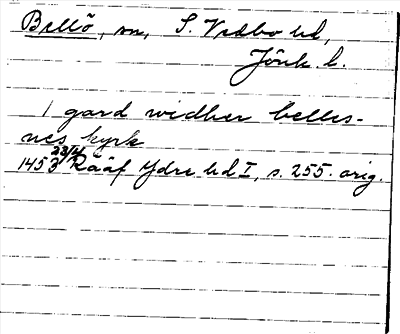 Bellö, sn, S. Vedbo hd,
Jönk. l.
1 gard widher belles-
nes kyrk
1453 23/4 Rääf Ydre hd I, s. 255. orig.